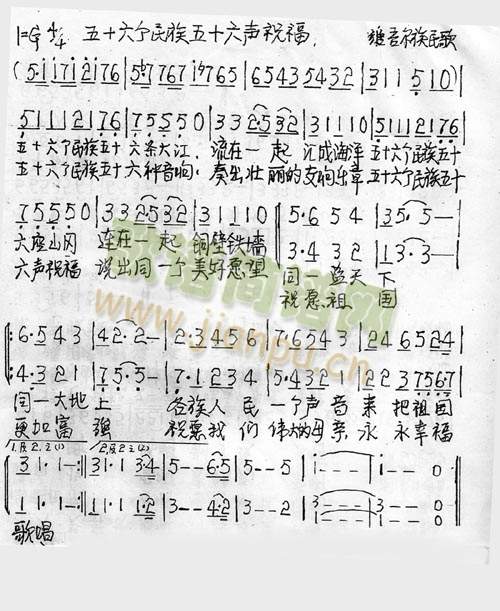 1=G 4/4 五十六个民族五十六声祝福, 维吾尔族民歌
(5·1 1 7 1 2 1 7 6 | 5 6 7 7 6 7 1 7 6 5 | 6 5 4 3 5 4 3 2 | 3 1 1 5 1 0)
5 1 1 1 2 1 7 6 | 7 5 5 5 0 | 3 3 2·5 3 2 | 3 1 1 1 0 | 5 1 1 1 2 1 7 6 |
五十六个民族五十 六条大江, 流在一起 汇成海洋 五十六个民族五十
五十六个民族五十六种音响, 奏出壮丽的交响乐章 五十六个民族五十
7 5 5 5 0 | 3 3 2·5 3 2 | 3 1 1 1 0 | 5·6 5 4 | 3 5· 5 —
3·4 3 2 | 1 3· 3 —
六座山冈 连在一起 铜墙铁墙 同一蓝天下
六声祝福 说出同一个美好愿望 祝愿祖国
6·5 4 3 | 4 2· 2 — | 2·3 4 5 6 | 7·6 5 4 3 | 2 4 6 5 2 4 |
4·3 2 1 | 7 5· 5 — | 7·1 2 3 4 | 5·4 3 2 1 | 2 2 3 7 5 6 7 |
同一大地上 各族人民一个声音来把祖国
更加富强 祝愿我们伟大的母亲永永幸福
3 1· 1 — :|| 3 1· 1 3 4 | 5 — — 6·5 | 5 — — 5 | i — — — | i — — 0
1 1· 1 — :|| 1 1· 1 1·2 | 3 — — 4·2 | 3 — — 2
歌唱
www.jianpu.cn